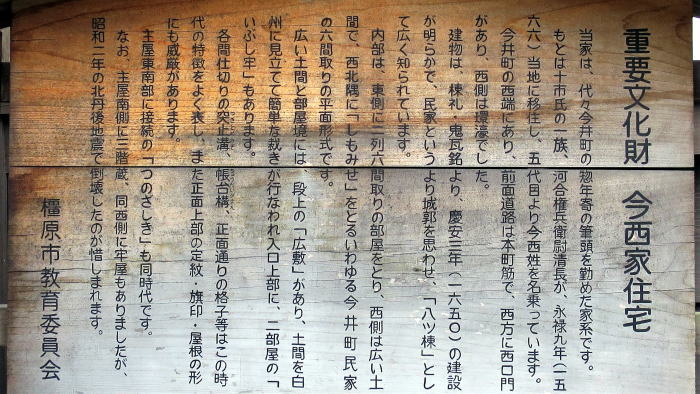 重要文化財　今西家住宅
当家は、代々今井町の惣年寄の筆頭を勤めた家系です。
もとは十市氏の一族、河合権兵衛尉清長が、永禄九年（一五
六六）当地に移住し、五代目より今西姓を名乗っています。
今井町の西端にあり、前面道路は本町筋で、西方に西口門
があり、西側は環濠でした。
建物は、棟札・鬼瓦銘より、慶安三年（一六五〇）の建設
が明らかで、民家というより城郭を思わせ、「八ツ棟」とし
て広く知られています。
内部は、東側に二列六間取りの部屋をとり、西側は広い土
間で、西北隅に「しもみせ」をとるいわゆる今井町民家
の六間取りの平面形式です。
広い土間と部屋境には、段上の「広敷」があり、土間を白
州に見立てて簡単な裁きが行なわれ入口上部に、二部屋の「
いぶし牢」もあります。
各間仕切りの突止溝、帳台構、正面通りの格子等はこの時
代の特徴をよく表し、また正面上部の定紋・旗印・屋根の形
にも威厳があります。
主屋東南部に接続の「つのざしき」も同時代です。
なお、主屋南側に三階蔵、同西側に牢屋もありましたが、
昭和二年の北丹後地震で倒壊したのが惜しまれます。
橿原市教育委員会